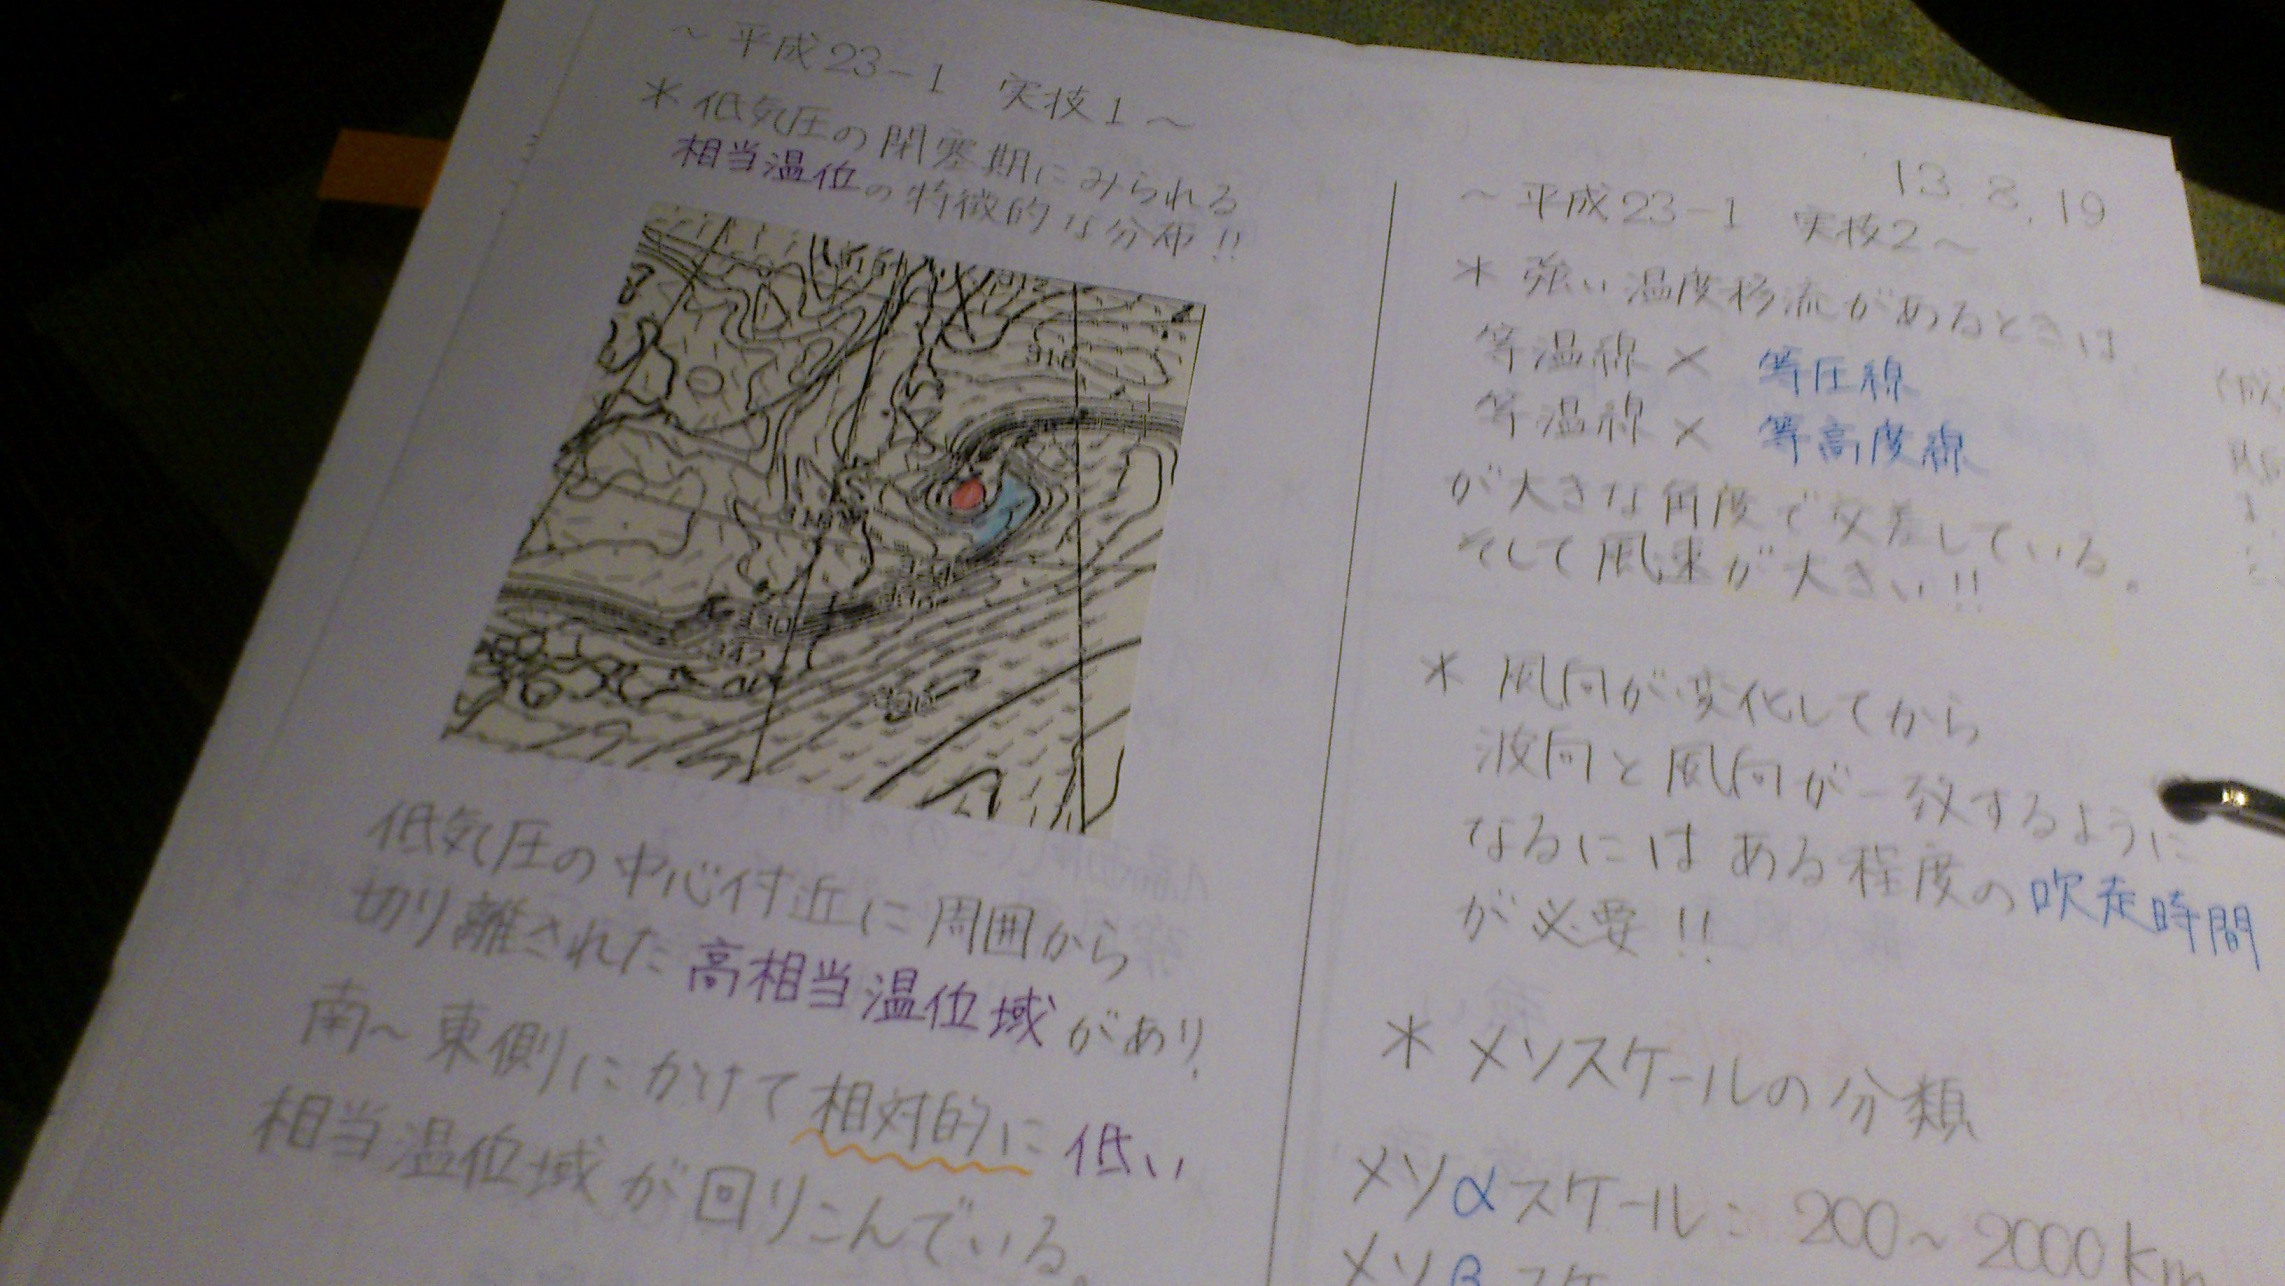 ～平成23-1 実技1～
＊低気圧の閉塞期にみられる
相当温位の特徴的な分布!!
318
330
345
336
低気圧の中心付近に周囲から
切り離された高相当温位域があり、
南～東側にかけて相対的に低い
相当温位域が回りこんでいる。
13.8.19
～平成23-1 実技2～
＊強い温度移流があるときは、
等温線×等圧線
等温線×等高度線
が大きな角度で交差している。
そして風速が大きい!!
＊風向が変化してから
波向と風向が一致するように
なるにはある程度の吹走時間
が必要!!
＊メソスケールの分類
メソαスケール：200～2000km
メソβスケ